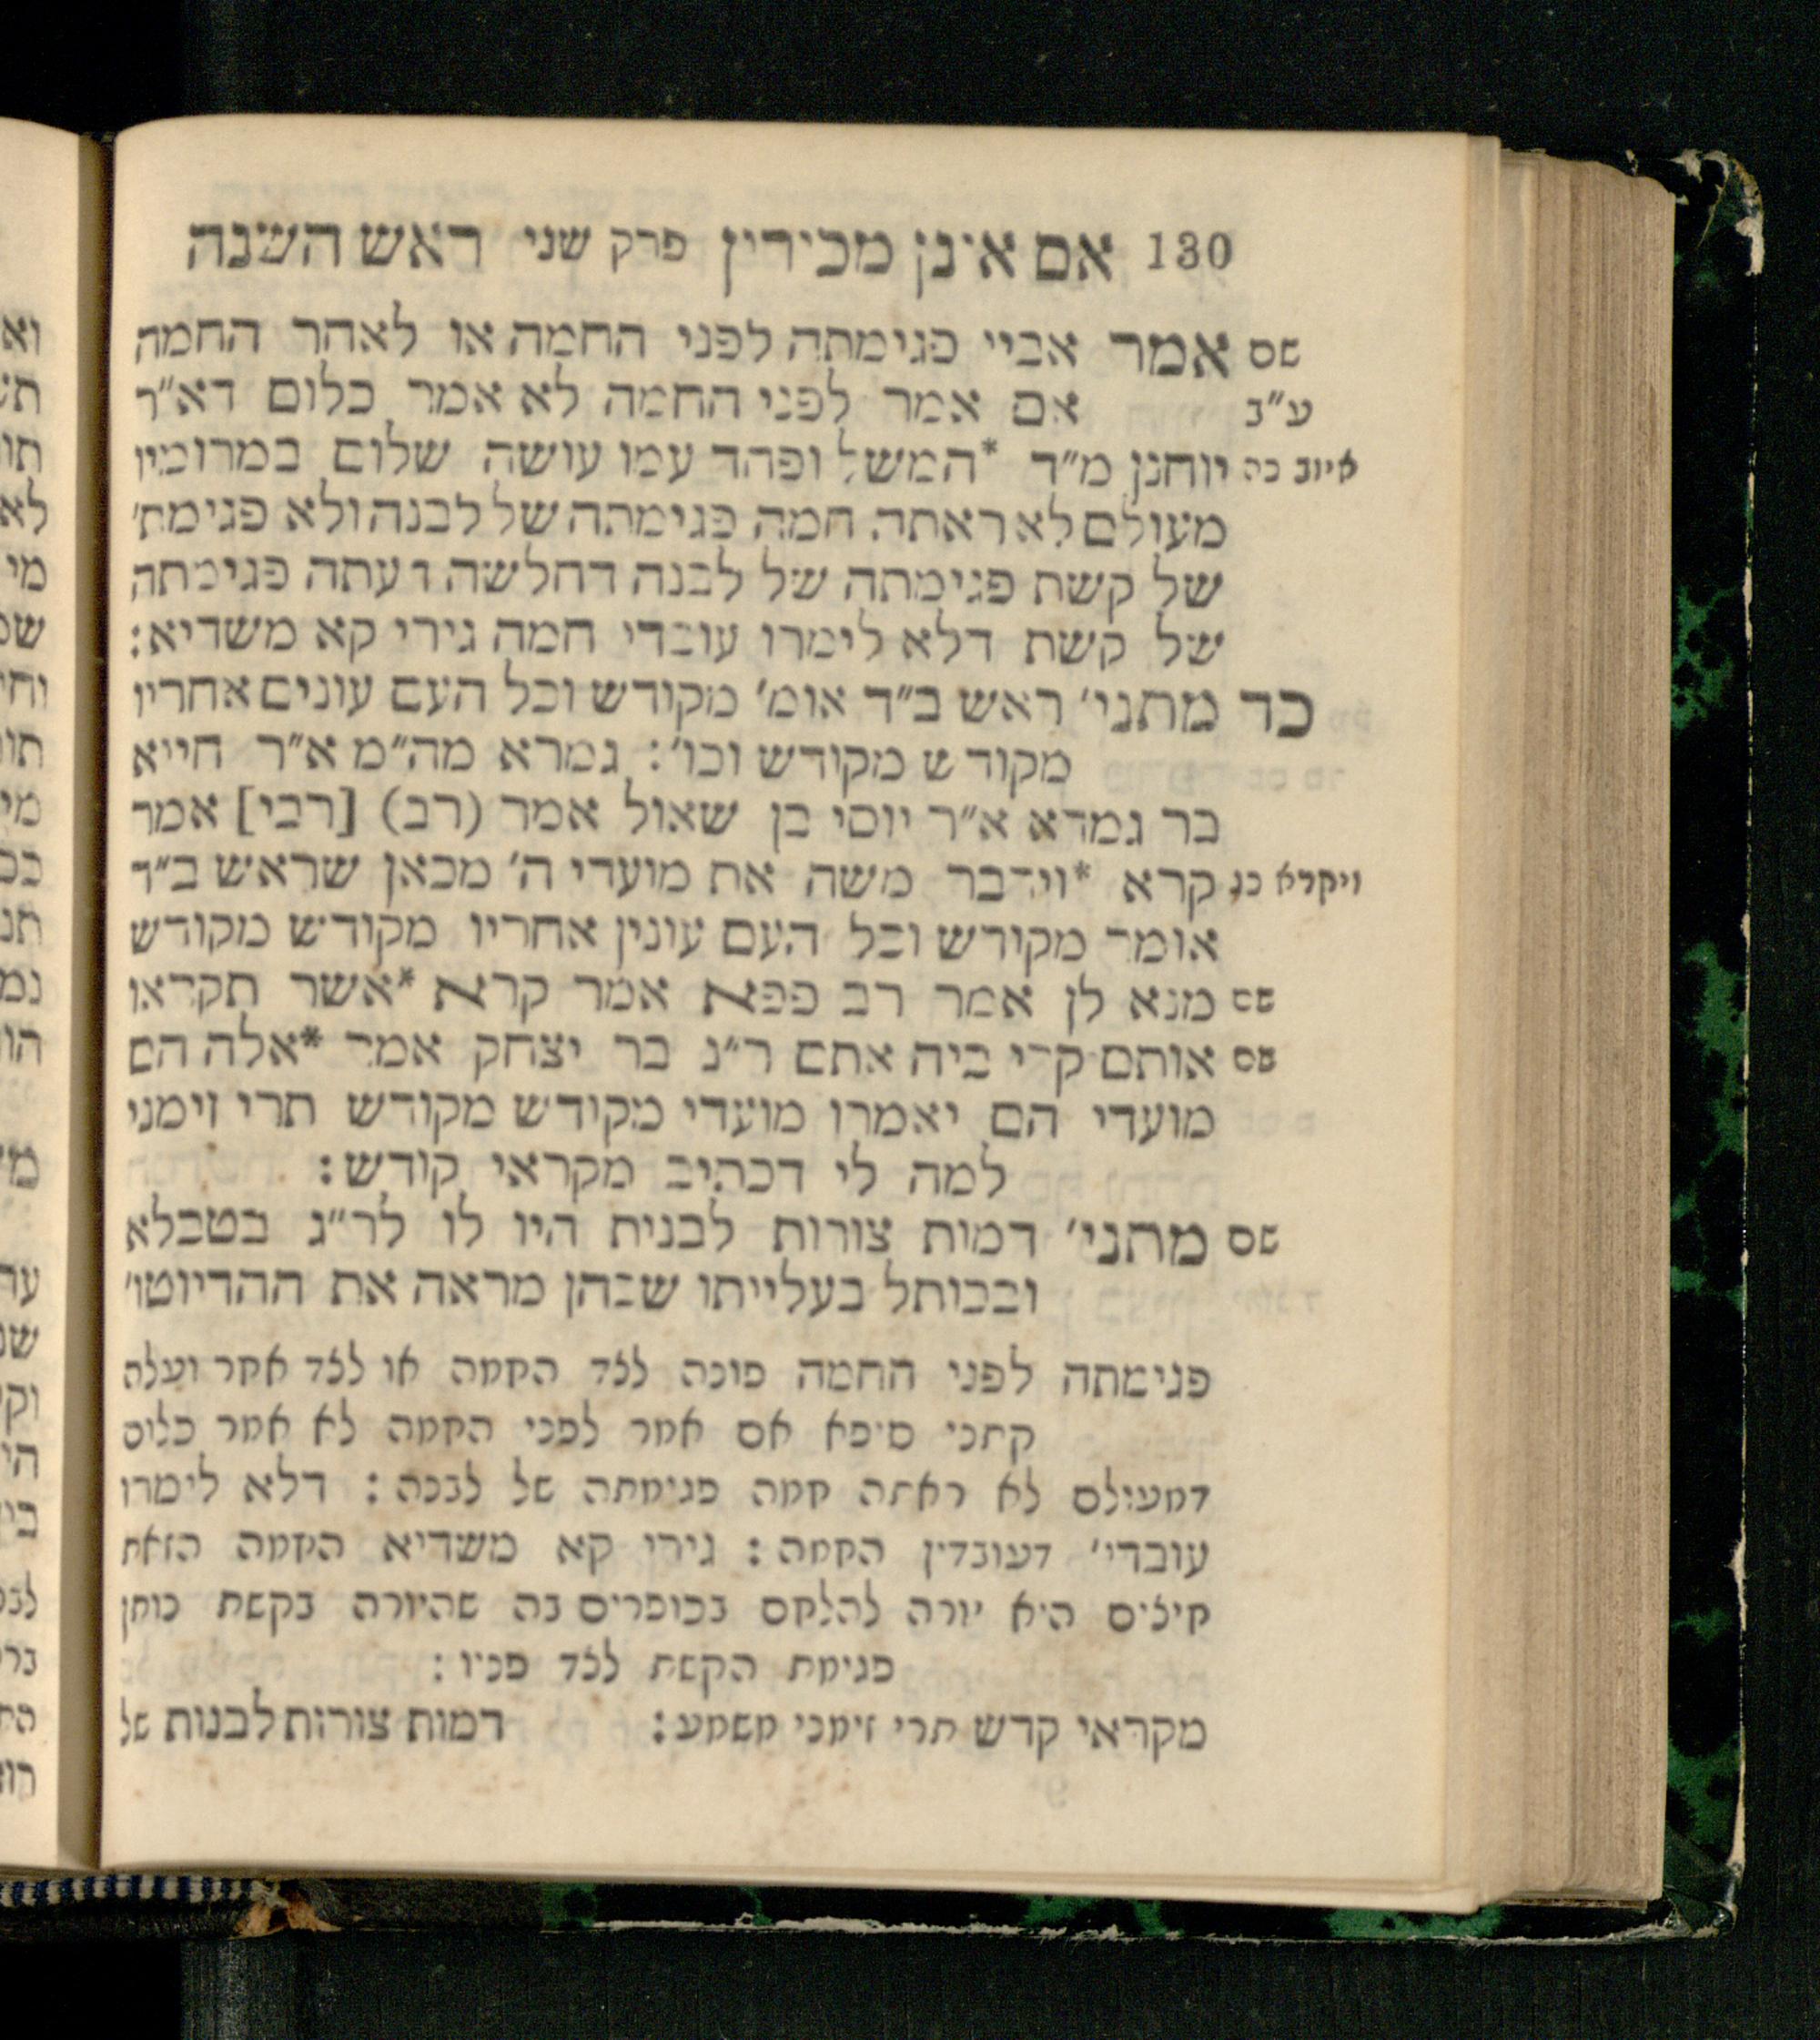 130 אם אינן מכירין פרק שני ראש השנה
שם אמר אביי פגימתה לפני החמה או לאחר החמה
ע״ב אם אמר לפני החמה לא אמר כלום דא״ר
איוב כה יוחנן מ״ד *המשל ופחד עמו עושה שלום במרומיו
מעולם לא ראתה חמה פגימתה של לבנה ולא פגימת׳
של קשת פגימתה של לבנה דחלשה דעתה פגימתה
של קשת דלא לימרו עובדי חמה גירי קא משדיא:
כד מתני׳ ראש ב״ד אומ׳ מקודש וכל העם עונים אחריו
מקודש מקודש וכו׳: גמרא מה״מ א״ר חייא
בר גמדא א״ר יוסי בן שאול אמר (רב) [רבי] אמר
ויקרא כג קרא *וידבר משה את מועדי ה׳ מכאן שראש ב״ד
אומר מקודש וכל העם עונין אחריו מקודש מקודש
שם מנא לן אמר רב פפא אמר קרא *אשר תקראו
שם אותם קרי ביה אתם ר״נ בר יצחק אמר *אלה הם
מועדי הם יאמרו מועדי מקודש מקודש תרי זימני
למה לי דכתיב מקראי קודש:
שם מתני׳ דמות צורות לבנית היו לו לר״ג בטבלא
ובכותל בעלייתו שבהן מראה את ההדיוטו׳
פגימתה לפני החמה פונה לצד החמה או לצד אחר ועלה
קתני סיפא אם אמר לפני החמה לא אמר כלום
דמעולם לא ראתה חמה פגימתה של לבנה: דלא לימרו
עובדי׳ דעובדין החמה: גירי קא משדיא החמה הזאת
חיצים היא יורה להלחם בכופרים בה שהיורה בקשת נותן
פגימת הקשת לצד פניו:
מקראי קדש תרי זימני משמע: דמות צורות לבנות של